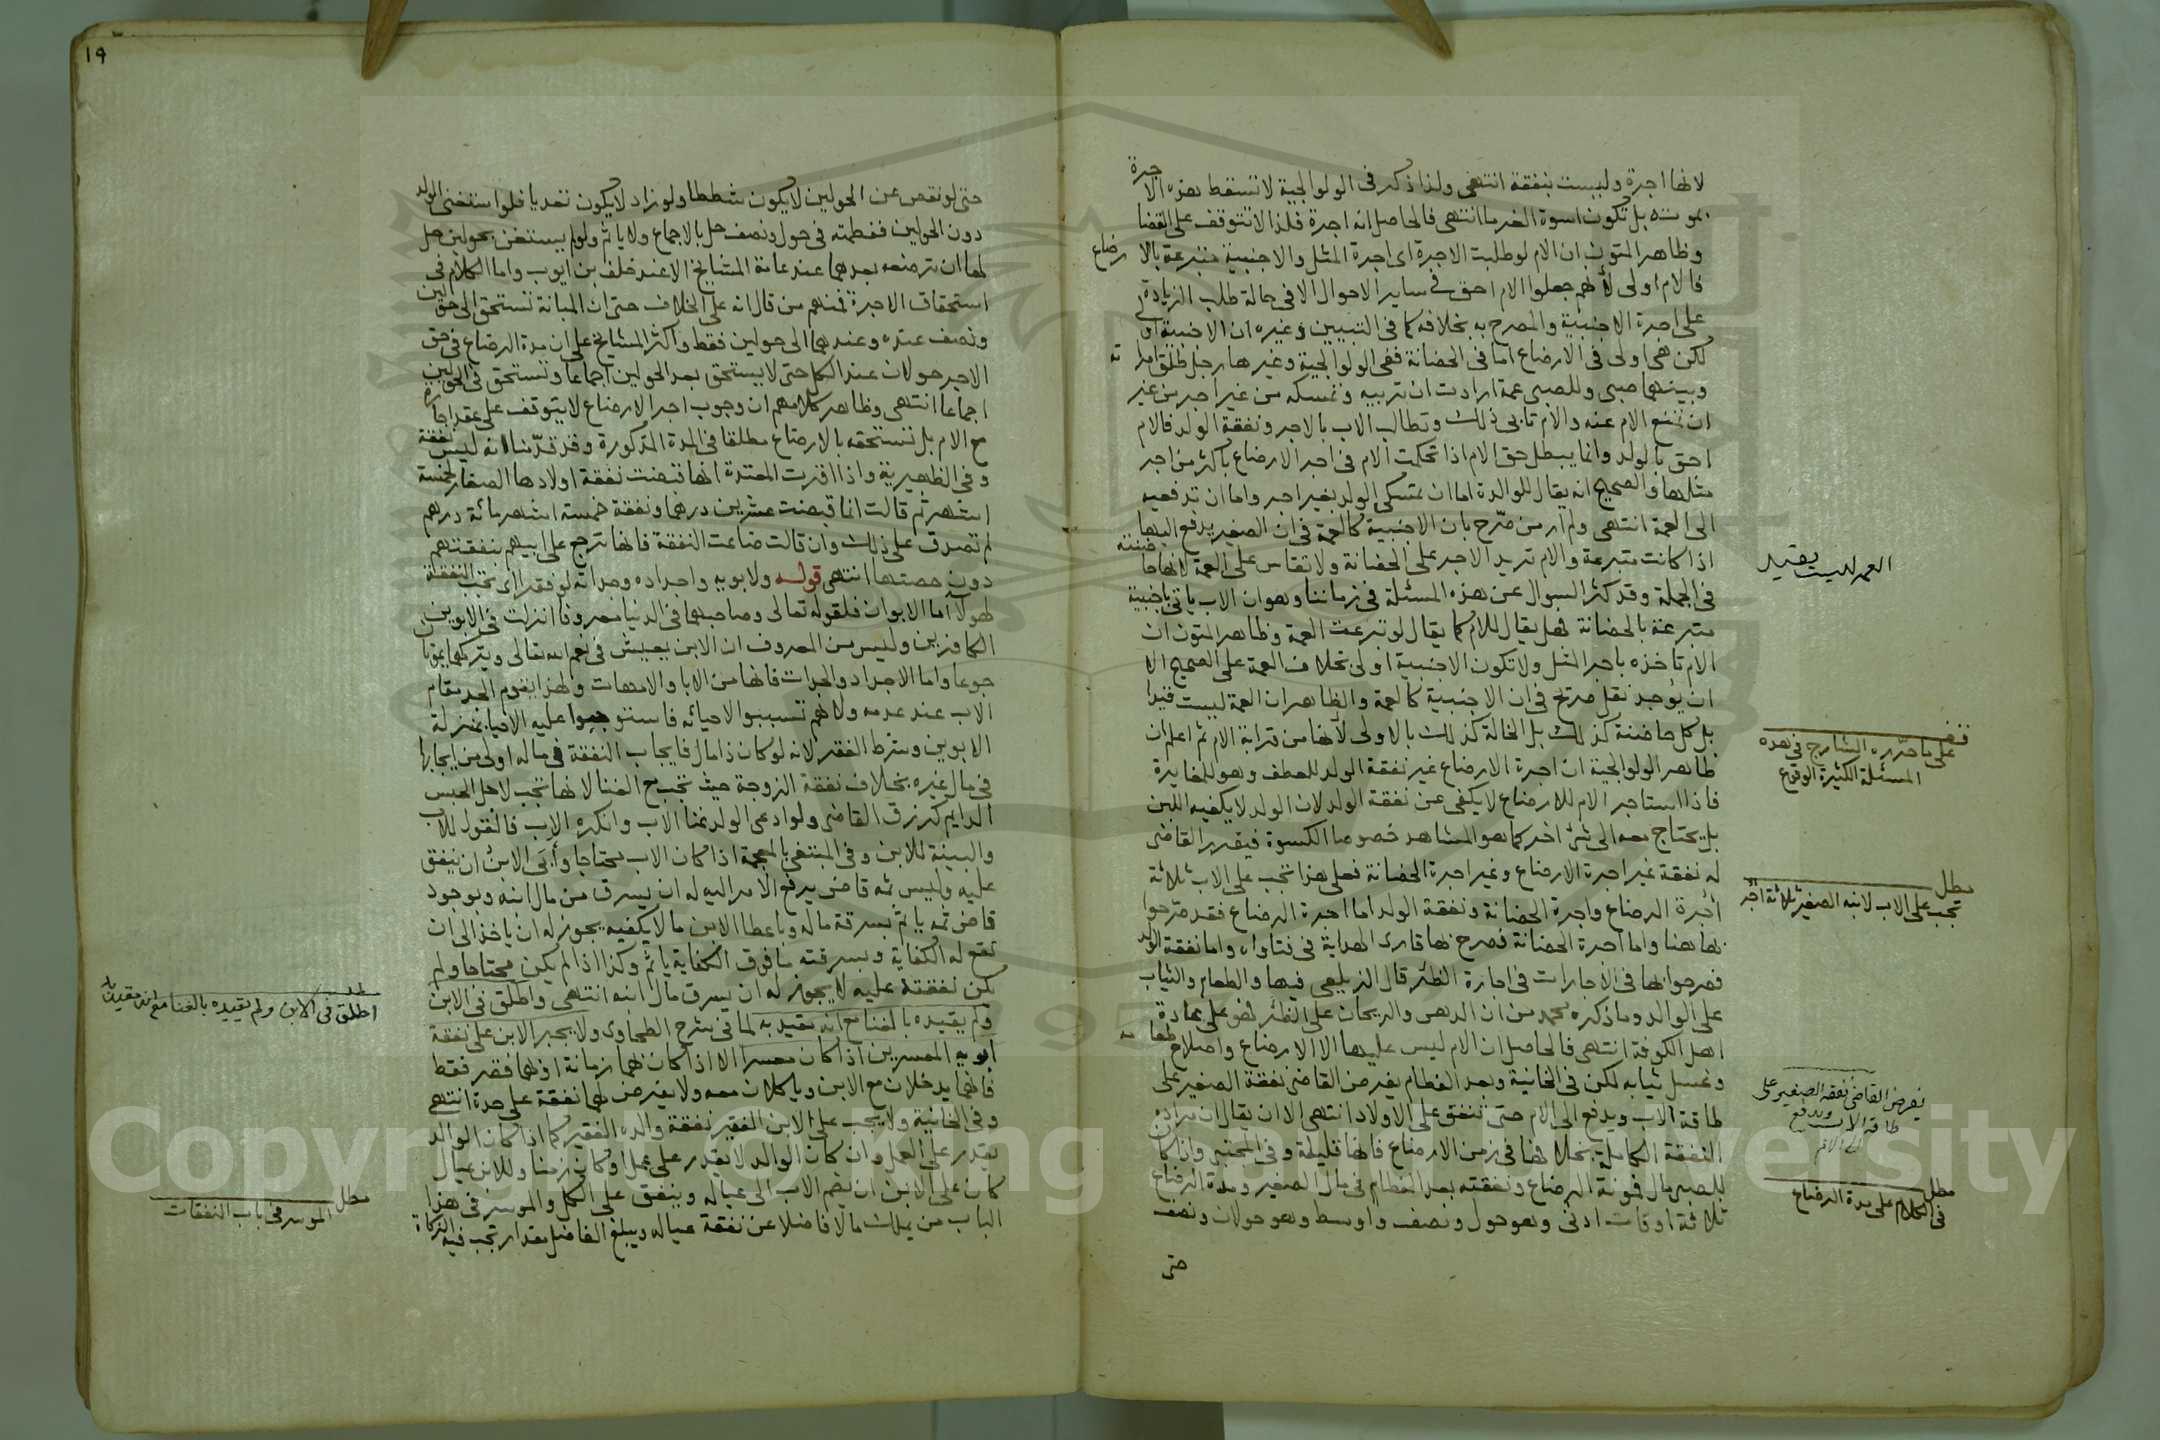 لانها اجرة وليست بنفقة انتهى ولذا ذكر فى الولوالجية لا تسقط هذه الاجرة
بموته بل تكون اسوة الغرماء انتهى فالحاصل انه اجرة فلذا لا تتوقف على القضا
وظاهر المتون ان الام لو طلبت الاجرة اى اجرة المثل والاجنبية متبرعة بالارضاع
فالام اولى لانهم جعلوا الام احق فى ساير الاحوال الا فى حالة طلب الزيادة
على اجرة الاجنبية والمصرح به بخلافه كما فى التبيين وغيره ان الاجنبية اولى
لكن هى اولى فى الارضاع اما فى الحضانة ففى الولوالجية وغيرها رجل طلق امراته
وبينهما صبى وللصبى عمة ارادت ان تربيه وتمسكه من غير اجر من غير
ان تمنع الام عنه والام تابى ذلك وتطالب الاب بالاجر ونفقة الولد فالام
احق بالولد وانما يبطل حق الام اذا تحكمت الام فى اجر الارضاع باكثر من اجر
مثلها والصحيح انه يقال للوالدة اما ان تمسكى الولد بغير اجر واما ان تدفعيه
الى العمة انتهى ولم ار من صرح بان الاجنبية كالعمة فى ان الصغير يدفع اليها
اذا كانت متبرعة والام تريد الاجر على الحضانة ولا تقاس على العمة لانها حاضنة
فى الجملة وقد كثر السوال عن هذه المسئلة فى زماننا وهو ان الاب ياتى باجنبية
متبرعة بالحضانة فهل يقال للام كما يقال لو تبرعت العمة وظاهر المتون ان
الام تاخذه باجر المثل ولا تكون الاجنبية اولى بخلاف العمة على الصحيح الا
ان يوجد نقل صريح فى ان الاجنبية كالعمة والظاهر ان العمة ليست قيدا
بل كل حاضنة كذلك بل الخالة كذلك بالاولى لانها من قرابة الام ثم اعلم ان
ظاهر الولوالجية ان اجرة الارضاع غير نفقة الولد للعطف وهو للمغايرة
فاذا استاجر الام للارضاع لا يكفى عن نفقة الولد لان الولد لا يكفيه اللبن
بل يحتاج معه الى شئ اخر كما هو المشاهد خصوصا الكسوة فيقرر القاضى
له نفقة غير اجرة الارضاع وغير اجرة الحضانة فعلى هذا تجب على الاب ثلاثة
اجرة الرضاع واجرة الحضانة ونفقة الولد اما اجرة الرضاع فقد صرحوا
بها هنا واما اجرة الحضانة فصرح بها قارى الهداية فى فتاواه واما نفقة الولد
فصرحوا بها فى الاجارات فى اجارة الظئر قال الزيلعى فيها والطعام والثياب
على الوالد وما ذكره محمد من ان الدهن والريحان على الظئر فهو على عادة
اهل الكوفة انتهى فالحاصل ان الام ليس عليها الا الارضاع واصلاح طعامه
وغسل ثيابه لكن فى الخانية وبعد الفطام يفرض القاضى نفقة الصغير على
طاقة الاب ويدفع الى الام حتى تنفق على الاولاد انتهى الا ان يقال ان مراده
النفقة الكاملة بخلافها فى زمن الارضاع فانها قليلة وفى المجتبى وان كان
للصبى مال فمونة الرضاع ونفقته بعد الفطام فى مال الصغير ومدة الرضاع
ثلاثة اوقات ادنى وهو حول ونصف واوسط وهو حولان ونصف
حتى
العمة ليست بقيد
قف على ما حرره الشارح فى هذه
المسئلة الكثيرة الوقوع
مطل
تجب على الاب لابنه الصغير ثلاثة اجر
يفرض القاضى نفقة الصغير على
طاقة الاب ويدفع
الى الام
مطل
فى الكلام على مدة الرضاع
١٩
حتى لو نقص عن الحولين لا يكون شططا ولو زاد لا يكون تعديا فلو استغنى الولد
دون الحولين ففطمته فى حول ونصف حل بالاجماع ولا ياثم ولو لم يستغن بحولين حل
لها ان ترضعه بعدهما عند عامة المشايخ الا عند خلف بن ايوب واما الكلام فى
استحقاق الاجرة فمنهم من قال انه على الخلاف حتى ان المبانة تستحق الى حولين
ونصف عنده وعندهما الى حولين فقط واكثر المشايخ على ان مدة الرضاع فى حق
الاجر حولان عند الكل حتى لا يستحق بعد الحولين اجماعا وتستحق فى الحولين
اجماعا انتهى وظاهر كلامهم ان وجوب اجر الارضاع لا يتوقف على عقد اجارة
مع الام بل تستحقه بالارضاع مطلقا فى المدة المذكورة وقد قدمنا انه ليس نفقة
وفى الظهيرية واذا اقرت المعتدة انها قبضت نفقة اولادها الصغار لخمسة
اشهر ثم قالت انما قبضت عشرين درهما ونفقة خمسة اشهر مائة درهم
لم تصدق على ذلك وان قالت ضاعت النفقة فانها ترجع على ابيهم بنفقتهم
دون حصتها انتهى قوله ولابويه واجداده وجداته لو فقرا اى تجب النفقة
لهولا اما الابوان فلقوله تعالى وصاحبهما فى الدنيا معروفا انزلت فى الابوين
الكافرين وليس من المعروف ان الابن يعيش فى نعم الله تعالى ويتركهما يموتان
جوعا واما الاجداد والجدات فانهما من الابا والامهات ولهذا يقوم الجد مقام
الاب عند عدمه ولانهم تسببوا لاحيائه فاستوجبوا عليه الاحيا بمنزلة
الابوين وشرط الفقر لانه لو كان ذا مال فايجاب النفقة فى ماله اولى من ايجابها
فى مال غيره بخلاف نفقة الزوجة حيث تجب مع الغنا لانها تجب لاجل الحبس
الدايم كرزق القاضى ولو ادعى الولد غنا الاب وانكره الاب فالقول للاب
والبينة للابن وفى المبتغى بالمعجمة اذا كان الاب محتاجا وابى الابن ان ينفق
عليه وليس ثمه قاض يرفع الامر اليه له ان يسرق من مال ابنه وبوجود
قاض ثمه ياثم بسرقة ماله وباعطا الابن ما لا يكفيه يجوز له ان ياخذ الى ان
تقع له الكفاية وبسرقته ما فوق الكفاية ياثم وكذا اذا لم يكن محتاجا ولم
تكن نفقته عليه لا يجوز له ان يسرق مال ابنه انتهى واطلق فى الابن
ولم يقيده بالغنا مع انه مقيد به لما فى شرح الطحاوى ولا يجبر الابن على نفقة
ابويه المعسرين اذا كان معسرا الا اذا كان بهما زمانة او بهما فقر فقط
فانهما يدخلان مع الابن وياكلان معه ولا يفرض لهما نفقة على حدة انتهى
وفى الخانية ولا يجب على الابن الفقير نفقة والده الفقير كما اذا كان الوالد
يقدر على العمل وان كان الوالد لا يقدر على عمل او كان زمنا وللابن عيال
كان على الابن ان يضم الاب الى عياله وينفق على الكل والموسر فى هذا
الباب من يملك مالا فاضلا عن نفقة عياله ويبلغ الفاضل مقدار تجب فيه الزكاة
اطلق فى الابن ولم يقيده بالغنا مع انه مقيد به
مطل
الموسر فى باب النفقات
Copyright © King Saud University